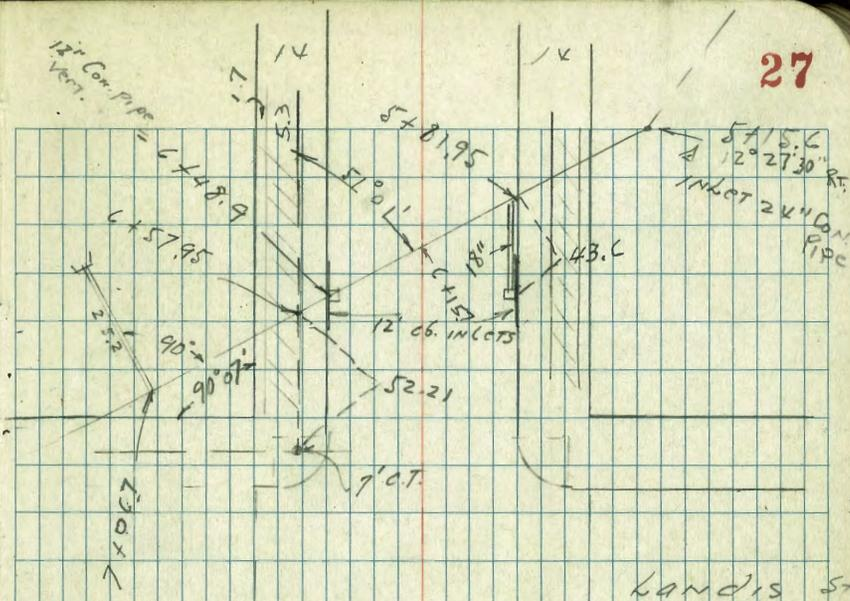 27
14
14
12" Con. pipe
Vert.
5.3
5+81.95
5+15.6
12°27'30" RT.
INLET 24" CON.
PIPE
6+48.9
51°01'
6+57.95
18"
43.6
6+15.
12' cb. INLETS
25.2
90°
90°01'
52.21
7' C.T.
7+06.7
Landis St